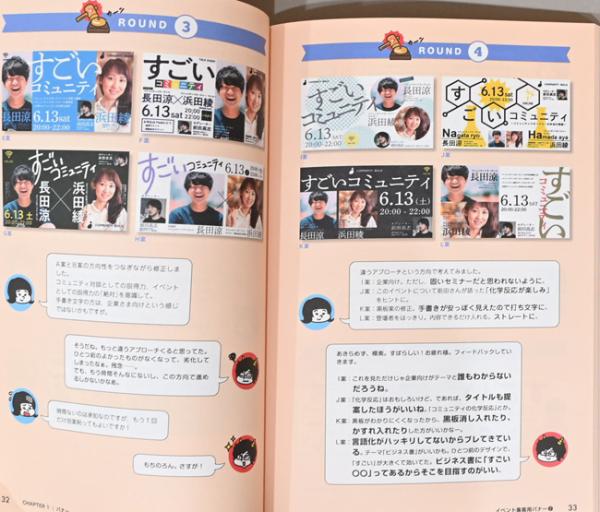 カーン
ROUND 3
すごい
コミュニティ
長田涼
浜田綾
6.13 sat
20:00-22:00
E案
TALK SHOW
すごい
コミュニティ
長田涼×浜田綾
6.13 sat 20:00
22:00
F案
すごい
コミュニティ
長田涼
×
浜田綾
6.13 土
20:00-22:00
G案
すごい
コミュニティ
6.13
長田涼
浜田綾
H案
A案とB案の方向性をつなぎながら修正しま
した。
コミュニティ対談としての説得力、イベント
としての説得力の「絶対」を意識して。
手書き文字の方は、企業さま向けという感じ
ではないかもですが。
そうだね、もっと違うアプローチくると思ってた。
ひとつ前のよかったものがなくなって、劣化して
しまったなぁ。残念……。
でも、もう時間そんなにないし、この方向で進め
るしかないかなあ。
時間ないのは承知なのですが、もう1回
だけ提案粘ってもよいですか！
もちのろん。さすが！
32
CHAPTER 1
バナー
カーン
ROUND 4
すごい
コミュニティ
長田涼
浜田綾
6.13 sat
20:00-22:00
I案
6.13 sat
20:00-22:00
すごい
コミュニティ
Nagata ryo
長田涼
Hamada aya
浜田綾
J案
すごいコミュニティ
6.13(土)
20:00 - 22:00
長田涼
浜田綾
K案
6.13 sat
20:00-22:00
長田涼
浜田綾
すごい
コミュニティ
L案
違うアプローチという方向で考えてみました。
I案：企業向け。ただし、固いセミナーだと思われないように。
J案：このイベントについて前田さんが語った「化学反応が楽しみ」
をヒントに。
K案：黒板案の修正。手書きが安っぽく見えたので打ち文字に。
L案：登壇者をはっきり。内容できるだけ入れる。ストレートに。
あきらめず、提案。すばらしい！お疲れ様。フィードバックしてい
きます。
I案：これを見ただけじゃ企業向けがテーマと誰もわからない
だろうね。
J案：「化学反応」はおもしろいけど、であれば、タイトルも提
案したほうがいいね。「コミュニティの化学反応」とか。
K案：黒板がわかりにくくなったから、黒板消し入れたり、
かすれ入れたりした方がいいかな〜。
L案：言語化がハッキリしてないからブレてきてい
る。テーマ「ビジネス」がいいかも。ひとつ前のデザインで、
「すごい」が大きくて効いてた。ビジネス書に「すごい
〇〇」ってあるからそこを目指すのがいい。
イベント集客用バナー②
33